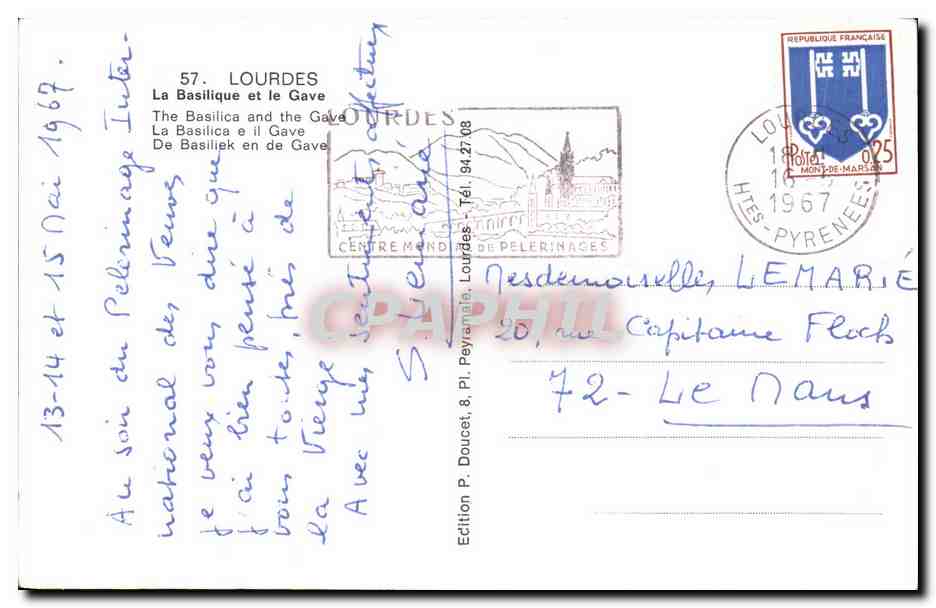 57. LOURDES
La Basilique et le Gave
The Basilica and the Gave
La Basilica e il Gave
De Basiliek en de Gave
13-14 et 15 Mai 1967.
Au soir du Pèlerinage Inter-
national des Veuves
je veux vous dire que
j'ai bien pensé à
vous toutes, près de
la Vierge
Avec mes sentiments affectueux
S. Lemarié
Edition P. Doucet, 8, Pl. Peyramale, Lourdes - Tél. 94.27.08
LOURDES
CENTRE MONDIAL DE PELERINAGES
LOURDES
18 H
16 - 5
1967
HTES-PYRENEES
REPUBLIQUE FRANÇAISE
POSTES 0,25
MONT-DE-MARSAN
Mesdemoiselles LEMARIÉ
20, rue Capitaine Floch
72 - Le Mans
CPAPHIL